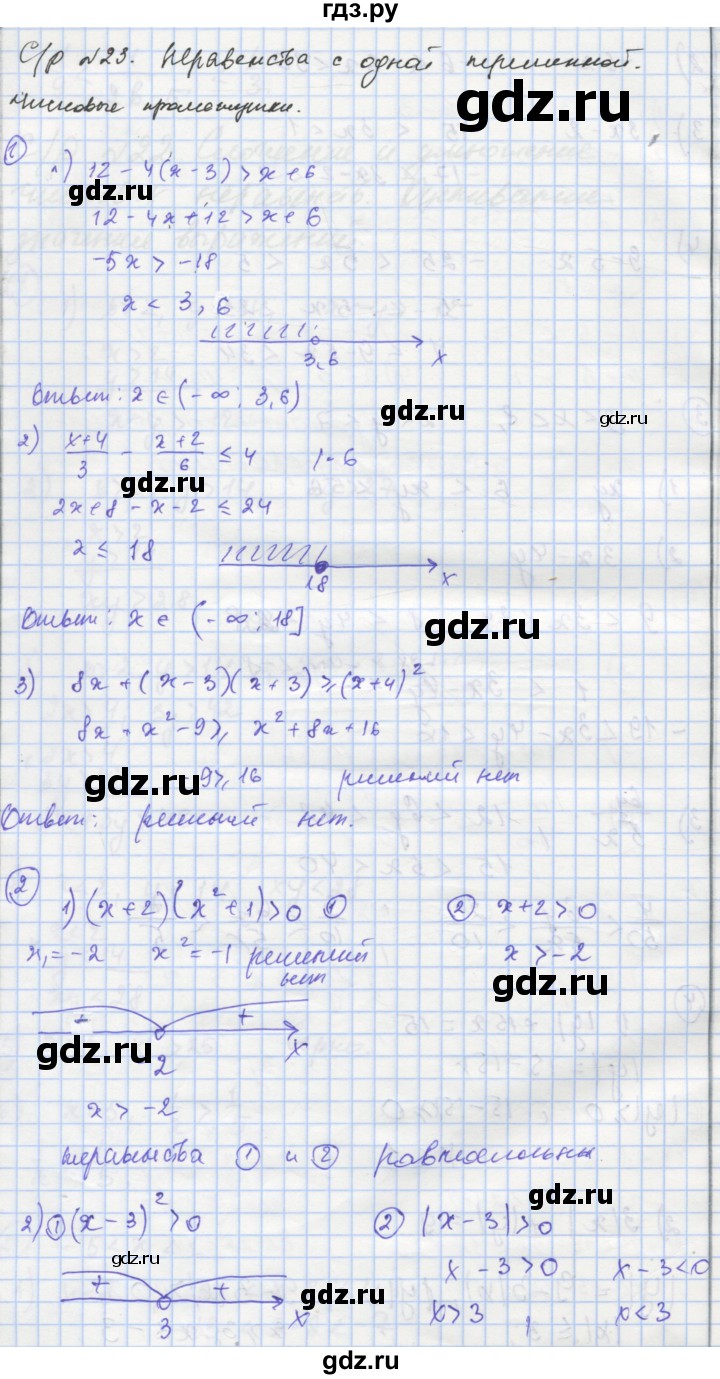 гдз.ру
С/р №23. Неравенства с одной переменной.
Числовые промежутки.
gdz.ru
①
1) 12 - 4(x - 3) > x + 6
gdz.ru
12 - 4x + 12 > x + 6
-5x > -18
gdz.ru
x < 3,6
3,6 x
Ответ: x ∈ (-∞; 3,6)
gdz.ru
gdz.ru
2) (x+4)/3 - (x+2)/6 ≤ 4 | · 6
gdz.ru
2x + 8 - x - 2 ≤ 24
x ≤ 18
18 x
Ответ: x ∈ (-∞; 18]
gdz.ru
3) 8x + (x - 3)(x + 3) ≥ (x + 4)²
8x + x² - 9 ≥ x² + 8x + 16
gdz.ru
-9 ≥ 16 решений нет
Ответ: решений нет.
②
1) (x + 2)(x² + 1) > 0 ① ② x + 2 > 0
x₁ = -2 x² = -1 решений нет x > -2
gdz.ru
- +
gdz.ru
-2 x
x > -2
неравенства ① и ② равносильны
gdz.ru
2) ① (x - 3)² > 0 ② |x - 3| > 0
gdz.ru
x - 3 > 0 x - 3 < 0
+ +
gdz.ru
3 x
x > 3 x < 3
gdz.ru